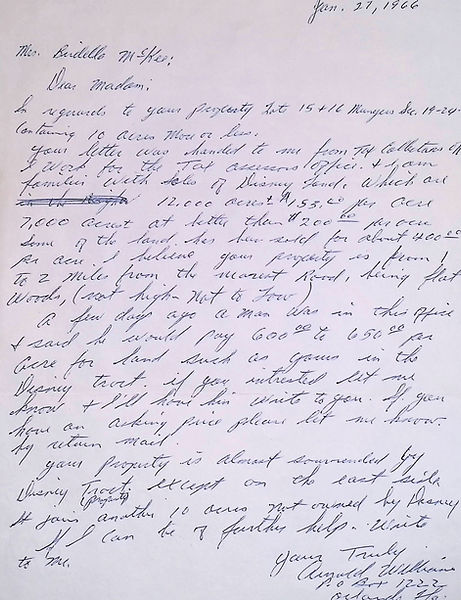 Jan. 27, 1966
Mrs. Birdella McKee;
Dear Madam;
In reguards to your property Lots 15 + 16 Mungers Sec. 19-24-
Containing 10 acres more or less.
Your letter was handed to me from Tax Collectors off
I work for the Tax assessors office. + I am
familier with Sales of Disney land, which are
12,000 acres + $ 155.00 per acre
7,000 acres at better than $ 200 00 per acre
Some of the land has been sold for about 400 00
per acre. I believe your property is from 1
to 2 miles from the nearest Road, being flat
Woods, (not high - Not to Low)
A few days ago a man was in this office
+ said he would pay 600 00 to 650 00 per
acre for land such as yours in the
Disney tract. if you intrested let me
know + I'll have him write to you. If you
have an asking price please let me know.
by return mail.
your property is almost surrended by
Disney Tract. except on the east side
(property)
It joins another 10 acres not owned by Disney
If I can be of further help - Write
to me.
Yours Truly
Arnold Williams
P.O Box 1222
Orlando Fla.